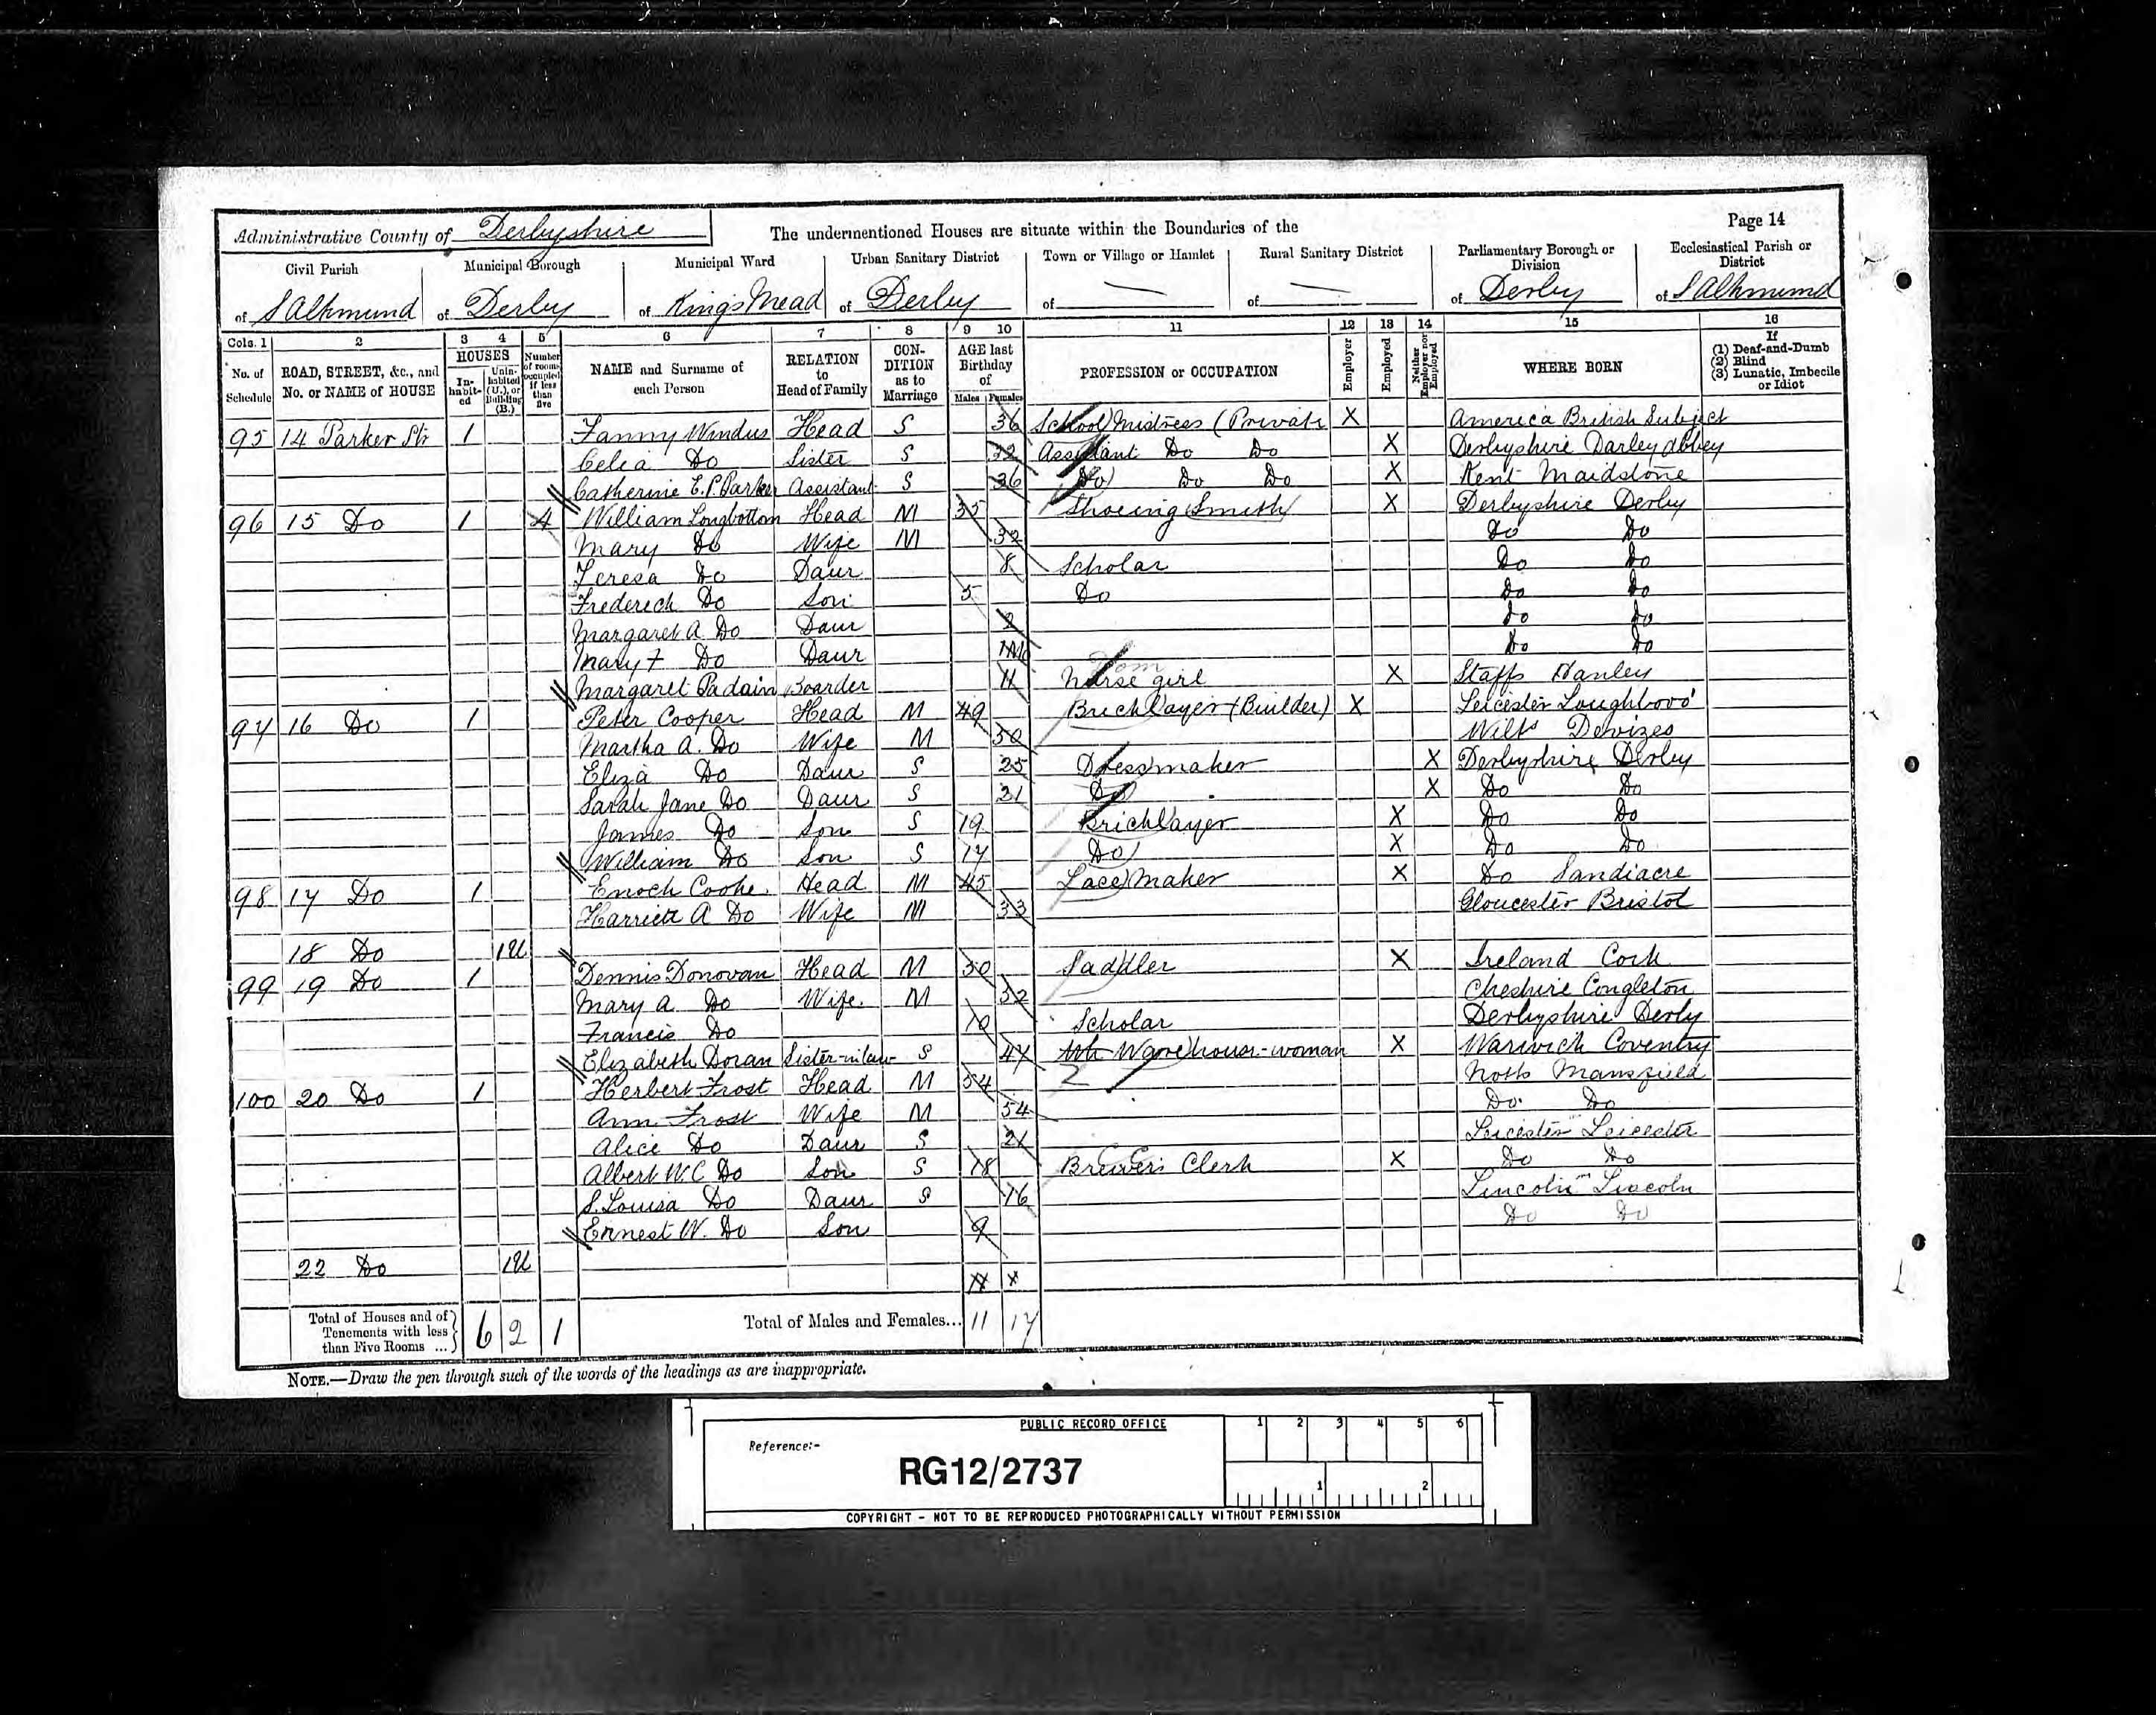 Page 14
Administrative County of Derbyshire The undermentioned Houses are situate within the Boundaries of the
Civil Parish Municipal Borough Municipal Ward Urban Sanitary District Town or Village or Hamlet Rural Sanitary District Parliamentary Borough or Division Ecclesiastical Parish or District
of S Alkmund of Derby of Kings Mead of Derby of — of — of Derby of S Alkmund
Cols. 1 2 3 4 5 6 7 8 9 10 11 12 13 14 15 16
No. of Schedule ROAD, STREET, &c., and No. or NAME of HOUSE HOUSES Inhabited Uninhabited (U.), or Building (B.) Number of rooms occupied if less than five NAME and Surname of each Person RELATION to Head of Family CONDITION as to Marriage AGE last Birthday of Males Females PROFESSION or OCCUPATION Employer Employed Neither Employer nor Employed WHERE BORN If (1) Deaf-and-Dumb (2) Blind (3) Lunatic, Imbecile or Idiot
95 14 Parker Str 1 Fanny Windus Head S 36 School Mistress (Private X America British Subject
Celia Do Sister S Assistant Do Do X Derbyshire Darley Abbey
Catherine E.P. Parker Assistant S 36 Do Do Do X Kent Maidstone
96 15 Do 1 4 William Longbottom Head M 35 Shoeing Smith X Derbyshire Derby
Mary Do Wife M 32 Do Do
Teresa Do Daur 8 Scholar Do Do
Frederick Do Son 5 Do Do Do
Margaret A Do Daur 2 Do Do
Mary F Do Daur Do Do
Margaret Padain Boarder 11 Nurse girl Dom X Staffs Hanley
97 16 Do 1 Peter Cooper Head M 49 Bricklayer (Builder) X Leicester Loughboro'
Martha A. Do Wife M 50 Wilts Devizes
Eliza Do Daur S 25 Dressmaker X Derbyshire Derby
Sarah Jane Do Daur S 21 Do X Do Do
James Do Son S 19 Bricklayer X Do Do
William Do Son S 17 Do X Do Do
98 17 Do 1 Enoch Cooke Head M 45 Lace Maker X Do Sandiacre
Harriett A Do Wife M 33 Gloucester Bristol
18 Do 1U
99 19 Do 1 Dennis Donovan Head M 30 Saddler X Ireland Cork
Mary A Do Wife M 32 Cheshire Congleton
Francis Do 10 Scholar Derbyshire Derby
Elizabeth Doran Sister-in-law S 47 Warehouse-woman X Warwick Coventry
100 20 Do 1 Herbert Frost Head M 54 2 Notts Mansfield
Ann Frost Wife M 54 Do Do
Alice Do Daur S 21 Leicester Leicester
Albert W.C Do Son S 18 Brewer's Clerk X Do Do
S. Louisa Do Daur S 16 Lincoln Lincoln
Ernest W. Do Son 9 Do Do
22 Do 1U
Total of Houses and of Tenements with less than Five Rooms ... 6 2 1 Total of Males and Females... 11 17
NOTE.—Draw the pen through such of the words of the headings as are inappropriate.
PUBLIC RECORD OFFICE
1 2 3 4 5 6
Reference:-
RG12/2737
1 2
COPYRIGHT - NOT TO BE REPRODUCED PHOTOGRAPHICALLY WITHOUT PERMISSION